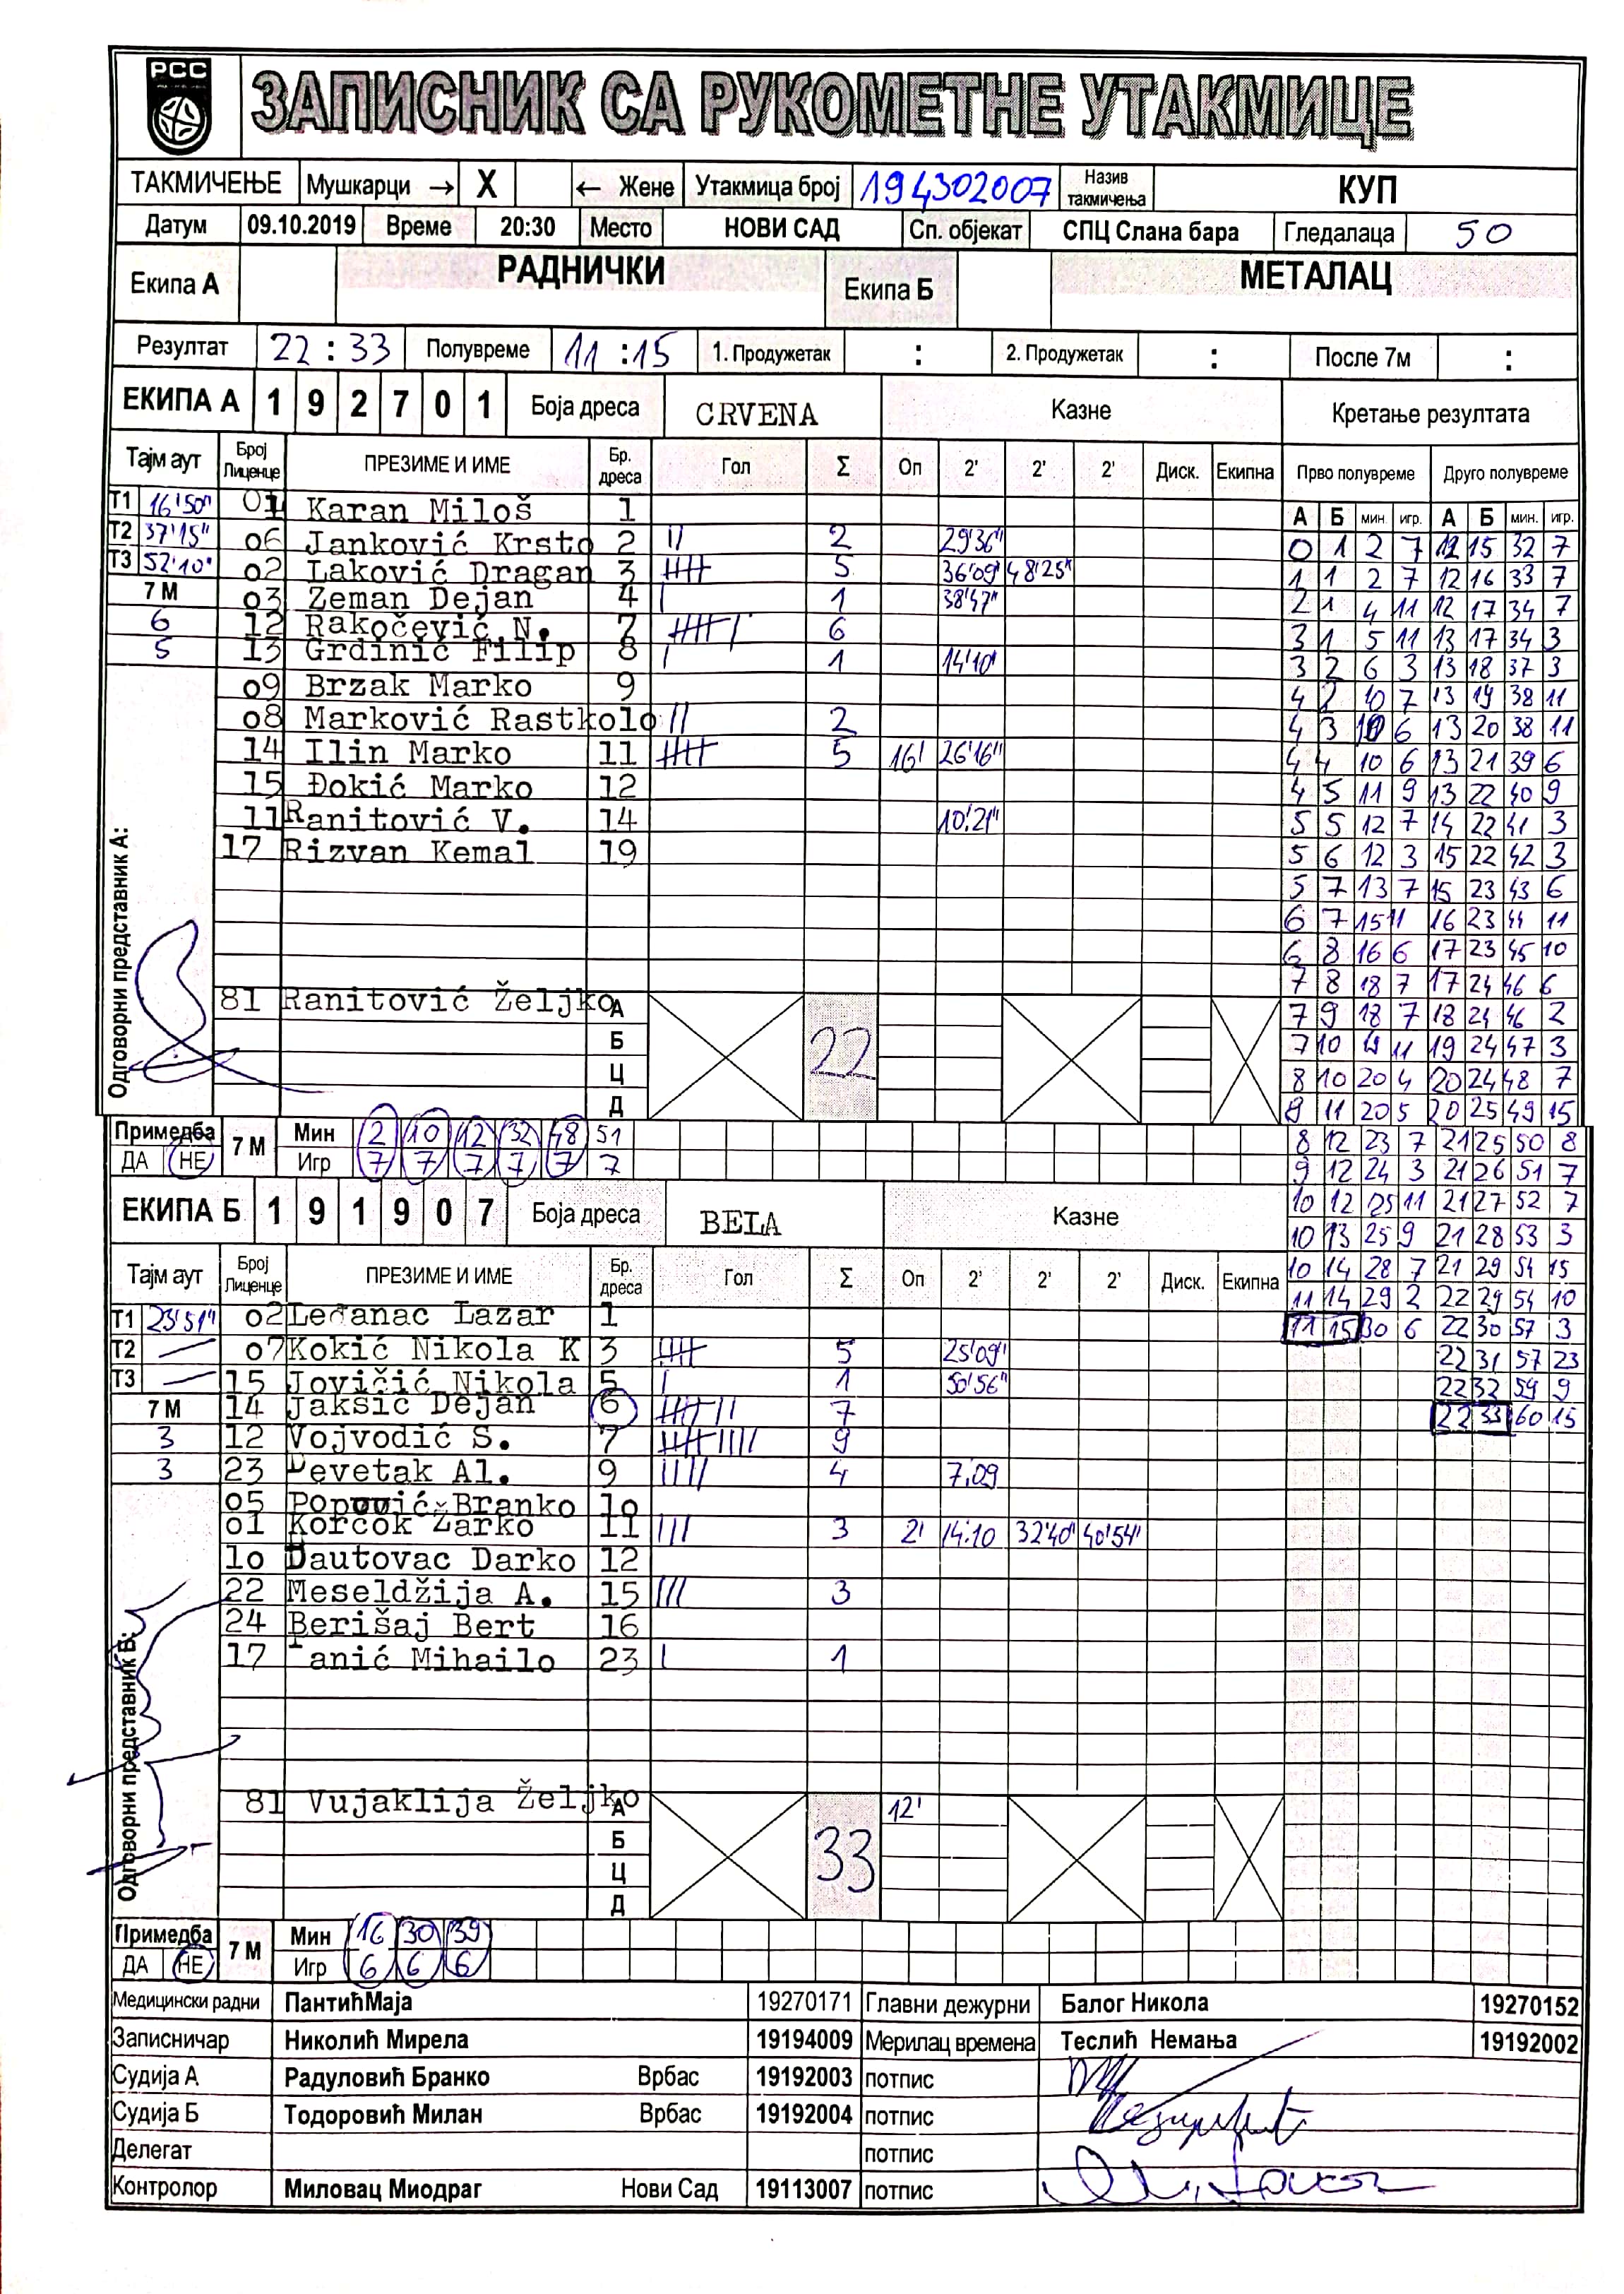 РСС
ЗАПИСНИК СА РУКОМЕТНЕ УТАКМИЦЕ
ТАКМИЧЕЊЕ Мушкарци → X ← Жене Утакмица број 194302007 Назив такмичења КУП
Датум 09.10.2019 Време 20:30 Место НОВИ САД Сп. објекат СПЦ Слана бара Гледалаца 50
Екипа А РАДНИЧКИ Екипа Б МЕТАЛАЦ
Резултат 22 : 33 Полувреме 11 : 15 1. Продужетак : 2. Продужетак : После 7м :
ЕКИПА А 1 9 2 7 0 1 Боја дреса CRVENA Казне Кретање резултата
Тајм аут Број Лиценце ПРЕЗИМЕ И ИМЕ Бр. дреса Гол Σ Оп 2' 2' 2' Диск. Екипна Прво полувреме Друго полувреме
Т1 16'50" 01 Karan Miloš 1 А Б мин. игр. А Б мин. игр.
Т2 37'15" 06 Janković Krsto 2 || 2 29'36" 0 1 2 7 12 15 32 7
Т3 52'10" 02 Laković Dragan 3 |||| 5 36'09" 48'25" 1 1 2 7 12 16 33 7
7 М 03 Zeman Dejan 4 | 1 38'47" 2 1 4 11 12 17 34 7
6 12 Rakočević N. 7 |||| | 6 3 1 5 11 13 17 34 3
5 13 Grdinić Filip 8 | 1 14'10" 3 2 6 3 13 18 37 3
09 Brzak Marko 9 4 2 10 7 13 19 38 11
08 Marković Rastko 10 || 2 4 3 10 6 13 20 38 11
14 Ilin Marko 11 |||| 5 16' 26'16" 4 4 10 6 13 21 39 6
15 Đokić Marko 12 4 5 11 9 13 22 40 9
11 Ranitović V. 14 10'21" 5 5 12 7 14 22 41 3
17 Rizvan Kemal 19 5 6 12 3 15 22 42 3
5 7 13 7 15 23 43 6
6 7 15 11 16 23 44 11
6 8 16 6 17 23 45 10
7 8 18 7 17 24 46 6
Одговорни представник А:
81 Ranitović Željko А 22 7 9 18 7 18 24 46 2
Б 7 10 19 11 19 24 47 3
Ц 8 10 20 4 20 24 48 7
Д 8 11 20 5 20 25 49 15
Примедба 7 М Мин 2 10 12 32 48 51 8 12 23 7 21 25 50 8
ДА НЕ Игр 7 7 7 7 7 7 9 12 24 3 21 26 51 7
ЕКИПА Б 1 9 1 9 0 7 Боја дреса BELA Казне 10 12 25 11 21 27 52 7
10 13 25 9 21 28 53 3
Тајм аут Број Лиценце ПРЕЗИМЕ И ИМЕ Бр. дреса Гол Σ Оп 2' 2' 2' Диск. Екипна 10 14 28 7 21 29 54 15
Т1 23'51" 02 Leđanac Lazar 1 11 14 29 2 22 29 54 10
Т2 — 07 Kokić Nikola K 3 |||| 5 25'09" 11 15 30 6 22 30 57 3
Т3 — 15 Jovičić Nikola 5 | 1 50'56" 22 31 57 23
22 32 59 9
7 М 14 Jaksić Dejan 6 |||| || 7 22 33 60 15
3 12 Vojvodić S. 7 |||| |||| 9
3 23 Devetak Al. 9 |||| 4 7.09
05 Popović Branko 10
01 Korčok Žarko 11 ||| 3 2' 14:10 32'40" 40'54"
10 Dautovac Darko 12
22 Meseldžija A. 15 ||| 3
24 Berišaj Bert 16
17 anić Mihailo 23 | 1
Одговорни представник Б:
81 Vujaklija Željko А 33 12'
Б
Ц
Д
Примедба 7 М Мин 16 30 39
ДА НЕ Игр 6 6 6
Медицински радни ПантићМаја 19270171 Главни дежурни Балог Никола 19270152
Записничар Николић Мирела 19194009 Мерилац времена Теслић Немања 19192002
Судија А Радуловић Бранко Врбас 19192003 потпис
Судија Б Тодоровић Милан Врбас 19192004 потпис
Делегат потпис
Контролор Миловац Миодраг Нови Сад 19113007 потпис